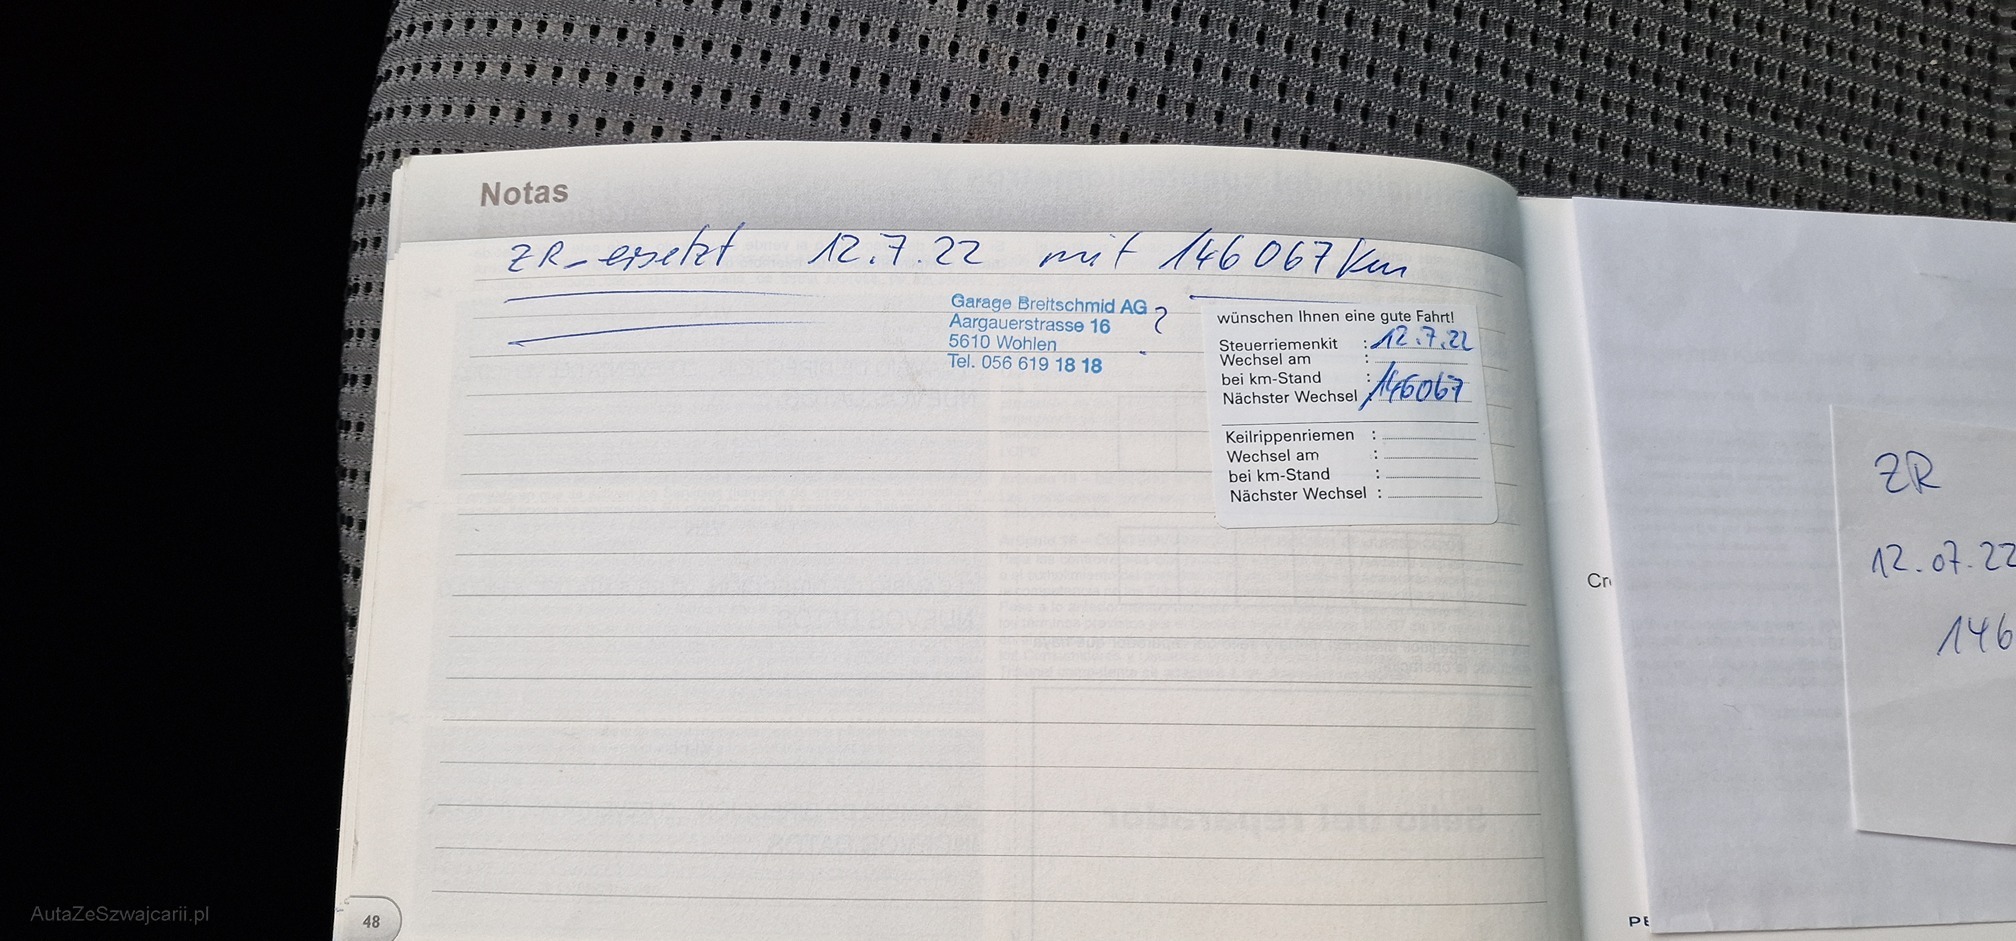 Notas
ZR ersetzt 12.7.22 mit 146067 km
Garage Breitschmid AG
Aargauerstrasse 16
5610 Wohlen
Tel. 056 619 18 18
wünschen Ihnen eine gute Fahrt!
Steuerriemenkit : 12.7.22
Wechsel am :
bei km-Stand : 146067
Nächster Wechsel :
Keilrippenriemen :
Wechsel am :
bei km-Stand :
Nächster Wechsel :
48
ZR
12.07.22
146
AutaZeSzwajcarii.pl